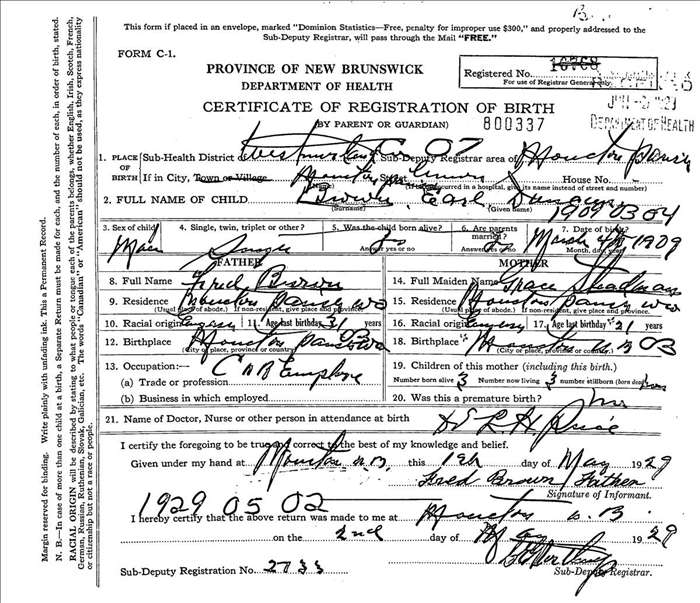 This form if placed in an envelope, marked "Dominion Statistics—Free, penalty for improper use $300," and properly addressed to the
Sub-Deputy Registrar, will pass through the Mail "FREE."
FORM C-1.
PROVINCE OF NEW BRUNSWICK
DEPARTMENT OF HEALTH
Registered No.
For use of Registrar General only.
CERTIFICATE OF REGISTRATION OF BIRTH
(BY PARENT OR GUARDIAN)
800337
DEPARTMENT OF HEALTH
1. PLACE OF BIRTH
Sub-Health District of Westmorland Sub-Deputy Registrar area of Moncton Parish
07
If in City, Town or Village House No.
(Name) (If birth occurred in a hospital, give its name instead of street and number)
2. FULL NAME OF CHILD Brown Earl
(Surname) (Given name)
1909 03 04
3. Sex of child 4. Single, twin, triplet or other? 5. Was the child born alive? 6. Are parents married? 7. Date of birth
Male Single Answer yes or no Answer yes or no March 4 1909
Month, day, year
FATHER MOTHER
8. Full Name Fred Brown 14. Full Maiden Name Grace Steadman
9. Residence Moncton Parish 15. Residence Moncton Parish
(Usual place of abode.) If non-resident, give place and province. (Usual place of abode.) If non-resident, give place and province.
10. Racial origin 11. Age last birthday 31 years 16. Racial origin 17. Age last birthday 21 years
12. Birthplace Moncton Parish 18. Birthplace Moncton N B 03
(City or place, province or country) (City or place, province or country.)
13. Occupation:— C N R Employe 19. Children of this mother (including this birth.)
(a) Trade or profession Number born alive 3 Number now living 3 number stillborn (born dead)
(b) Business in which employed 20. Was this a premature birth? No
21. Name of Doctor, Nurse or other person in attendance at birth Price
I certify the foregoing to be true and correct to the best of my knowledge and belief.
Given under my hand at Moncton N.B. this 1st day of May 1929
Fred Brown Father
Signature of Informant.
1929 05 02
I hereby certify that the above return was made to me at Moncton N.B
on the 2nd day of May 1929
Sub-Deputy Registration No. 2733 Sub-Deputy Registrar.
Margin reserved for binding. Write plainly with unfading ink. This a Permanent Record.
N. B.—In case of more than one child at a birth, a Separate Return must be made for each, and the number of each, in order of birth, stated.
RACIAL ORIGIN will be described by stating to what people or tongue each of the parents belongs, whether English, Irish, Scotch, French,
German, Russian, Ruthenian, Slovak, Galician, etc. The words "Canadian" or "American" should not be used, as they express nationality
or citizenship but not a race or people.